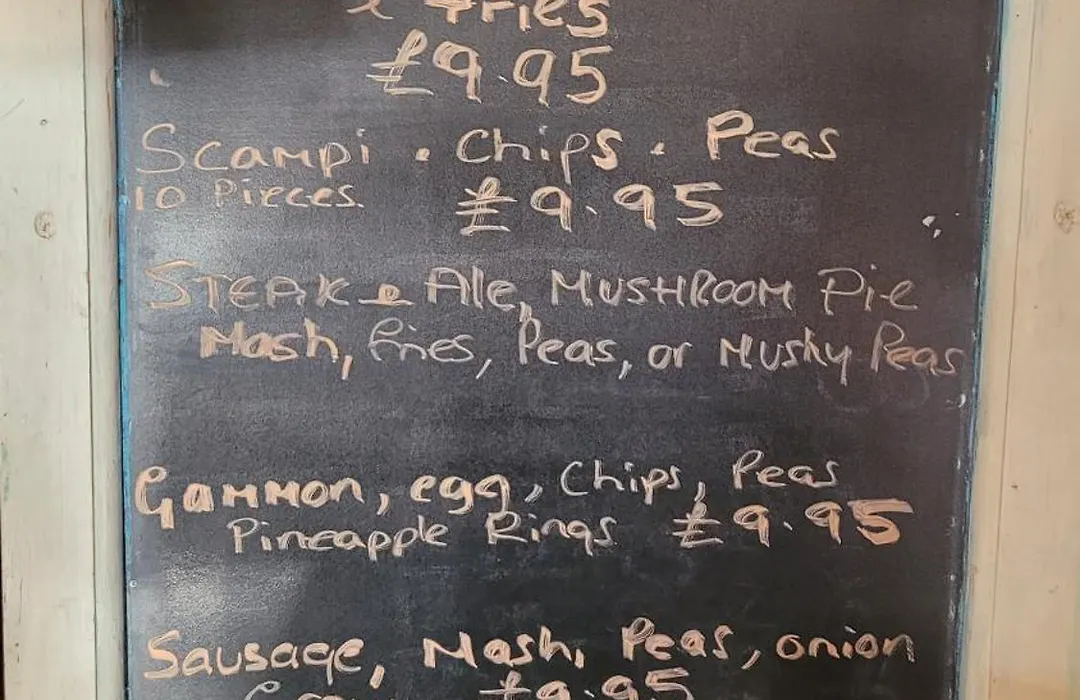 & Fries
£9.95
Scampi . Chips . Peas
10 Pieces. £9.95
STEAK & Ale, MUSHROOM Pie
Mash, fries, Peas, or Mushy Peas
Gammon, egg, Chips, Peas
Pineapple Rings £9.95
Sausage, Mash, Peas, onion
£9.95